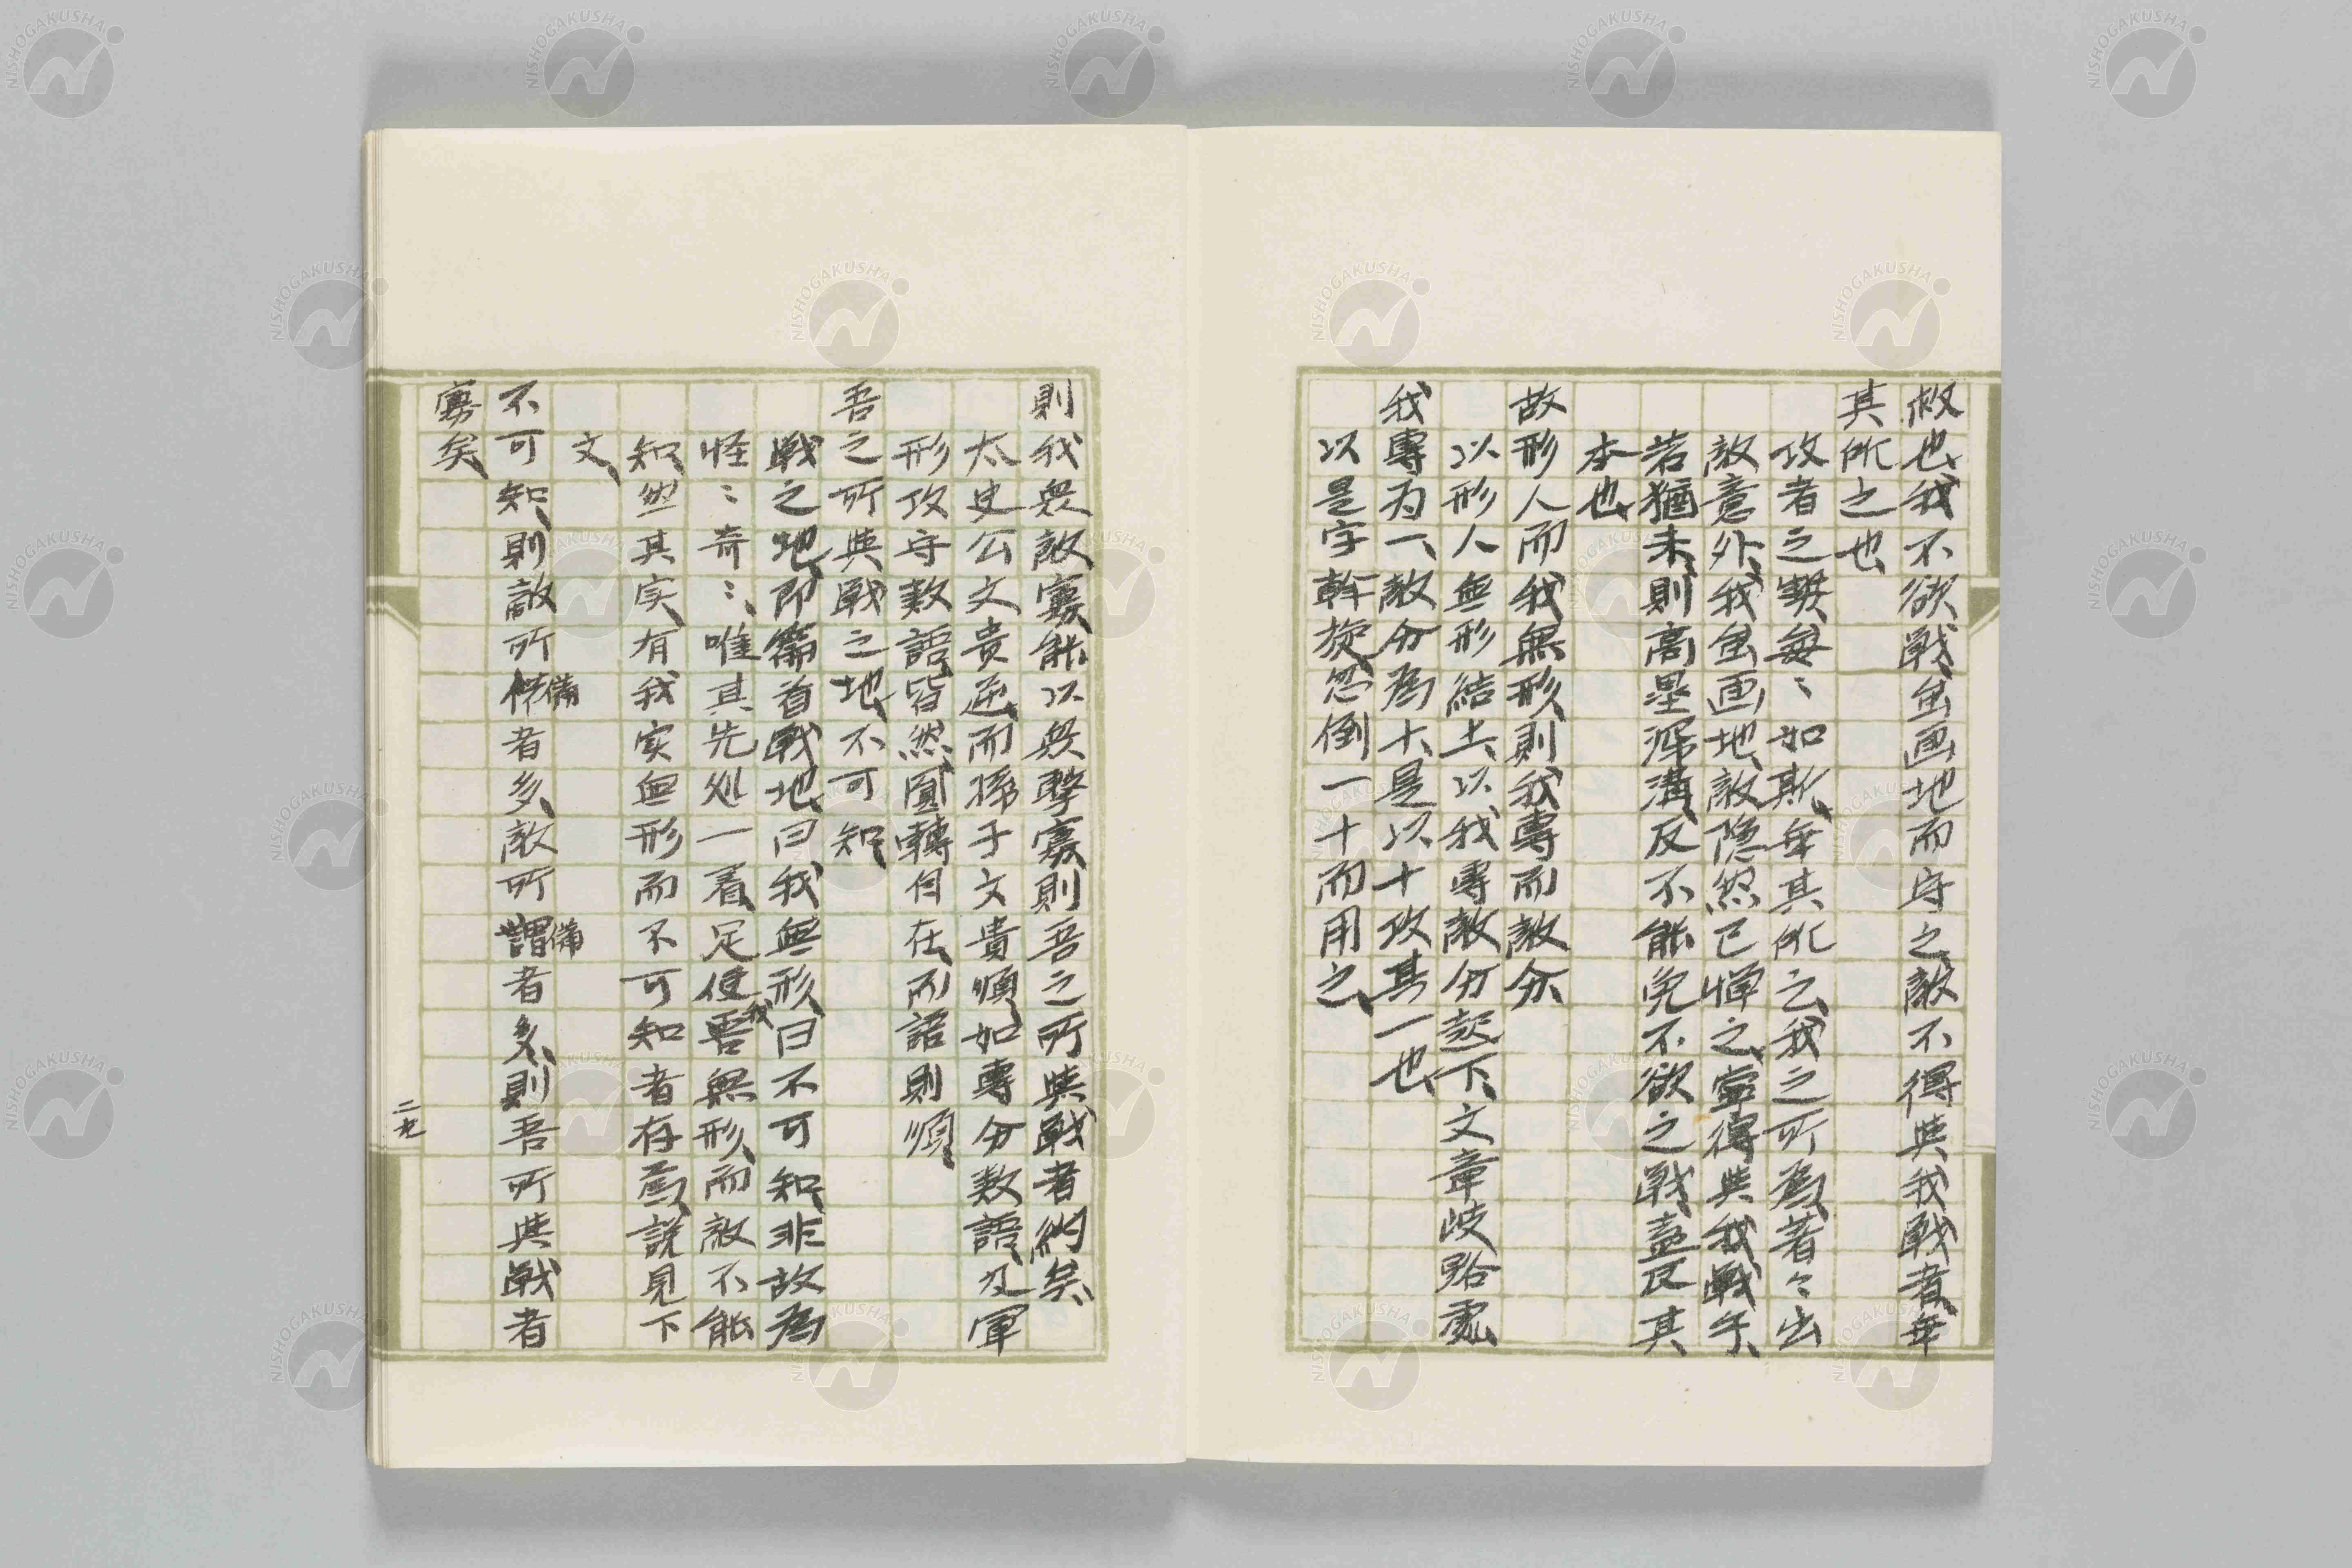 救也、我不欲戦、虽画地而守之、敵不得与我戦者、乖
其所之也
攻者之弊毎〻如斯、乖其所之、我之所為、著々出
敵意外、我虽画地、敵隠然已憚之、寧得与我戦乎、
若猶未、則高塁深溝、反不能免不欲之戦、盖民其
本也
故形人而我無形、則我専而敵分、
以形人無形結上、以我専敵分起下、文章岐路処、
我専為一、敵分為十、是以十攻其一也、
以是字斡旋、忽倒一十而用之、
則我衆敵寡、能以衆撃寡、則吾之所与戦者約矣、
太史公文貴逆、而孫子文貴順、如専分数語、及軍
形攻守数語皆然、圓轉自在、而語則順、
吾之所与戦之地、不可知、
戦之地、即篇首戦地、曰我無形、曰不可知、非故為
怪〻奇〻、唯其先処一着、足使我無形、而敵不能
知、然其実、有我実無形而不可知者存焉、説見下
文、
不可知、則敵所備者多、敵所備者多、則吾所与戦者
寡矣、
二九
NISHOGAKUSHA